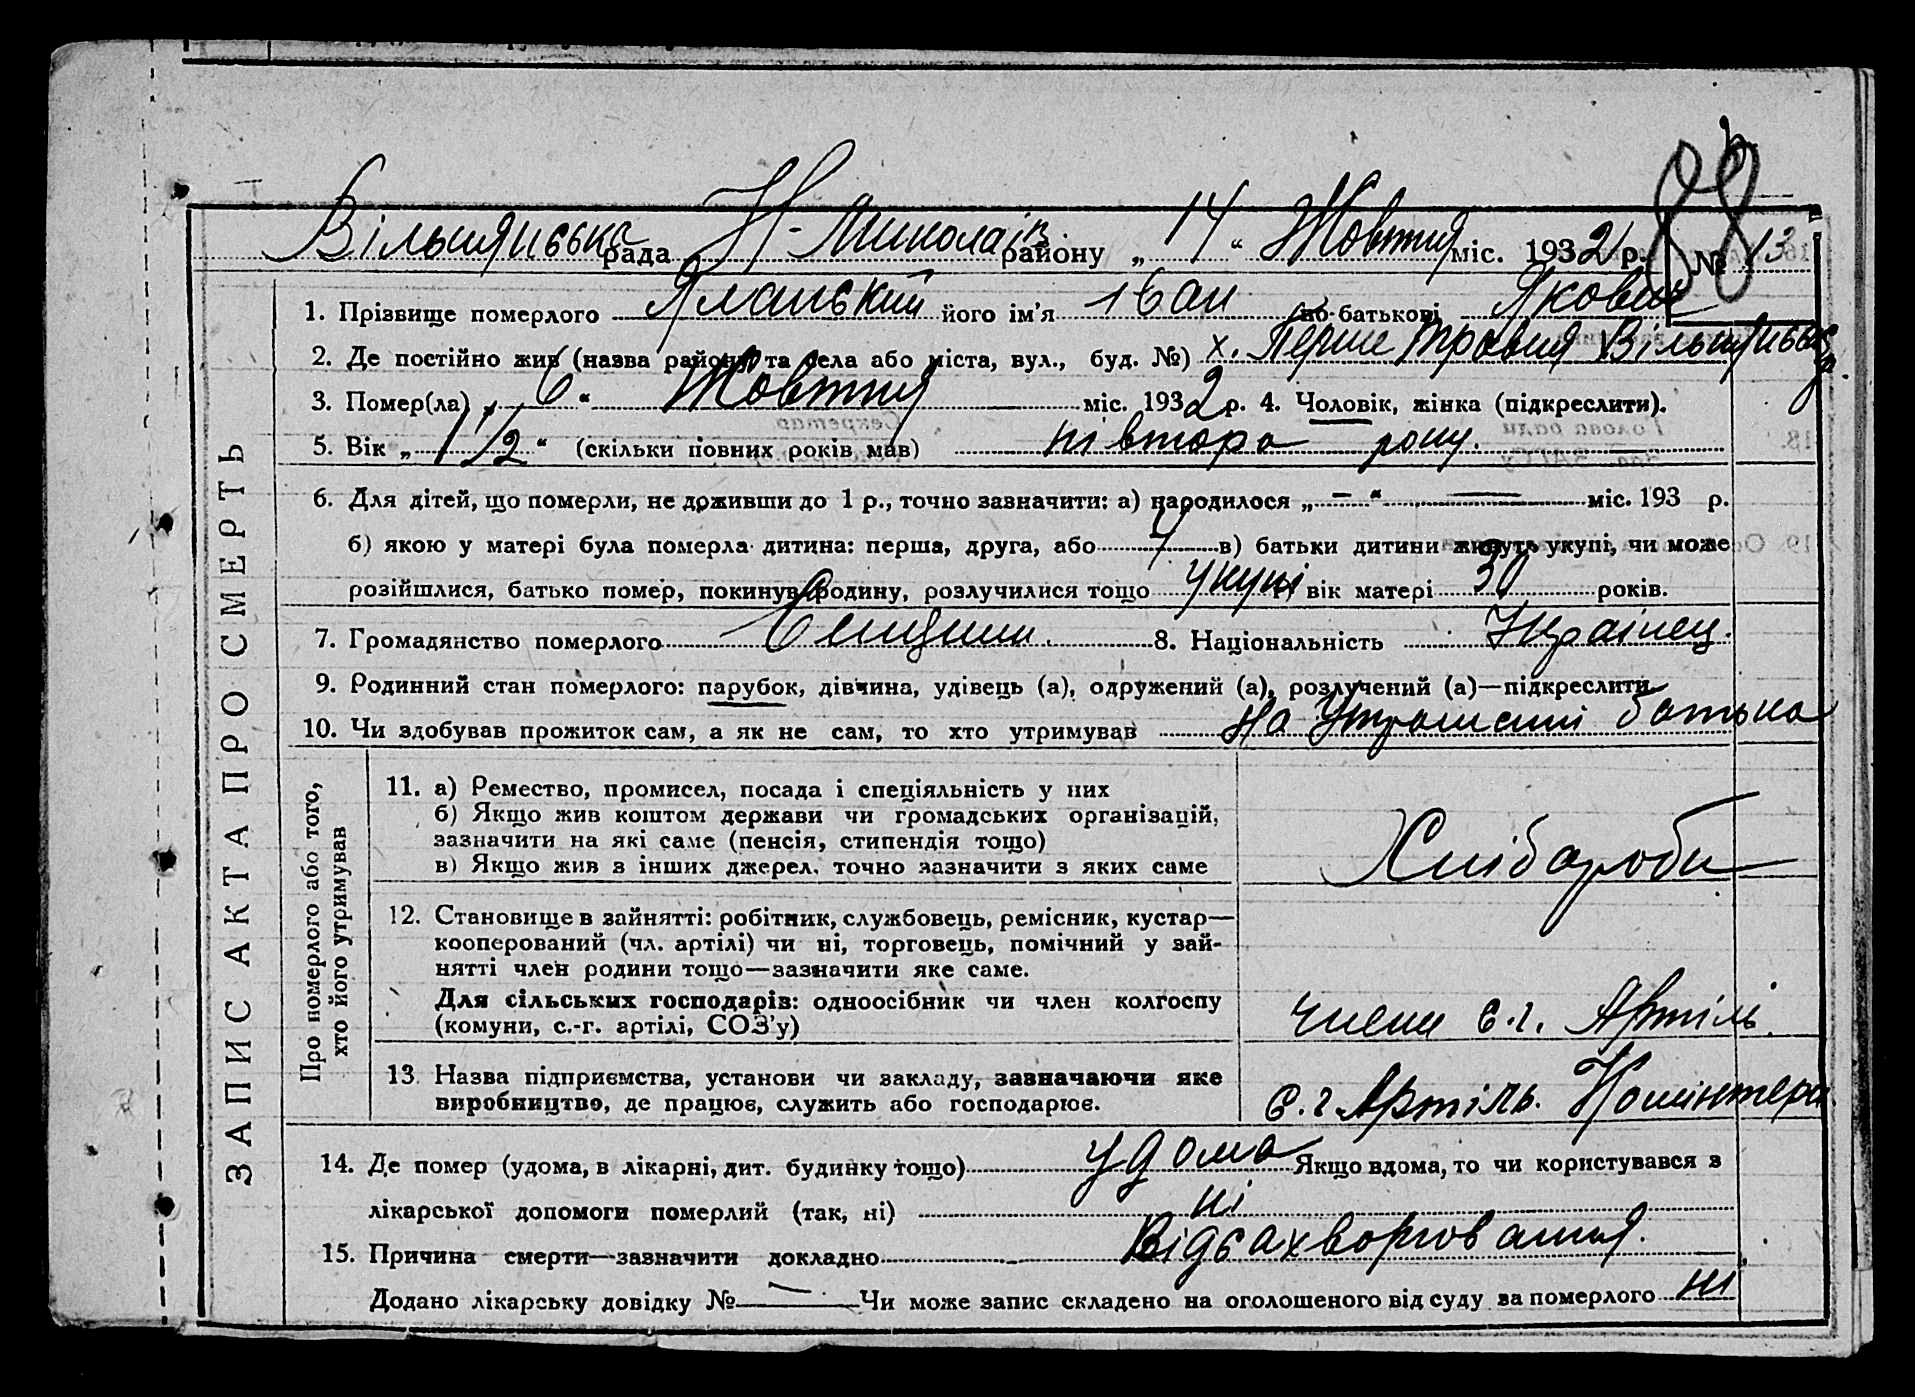 88
Вільнянська рада Н-Миколаїв району „ 14 “ Жовтня міс. 1932 р. № 13
1. Прізвище померлого Яланський його ім'я Іван по-батькові Якович
2. Де постійно жив (назва району та села або міста, вул., буд. №) х. Перше Травня Вільнянська р.
3. Помер(ла) „ 6 “ Жовтня міс. 1932 р. 4. Чоловік, жінка (підкреслити).
5. Вік „ 1 1/2 “ (скільки повних років мав) півтора року.
6. Для дітей, що померли, не доживши до 1 р., точно зазначити: а) народилося „ — “ — міс. 193 р.
б) якою у матері була померла дитина: перша, друга, або 4 в) батьки дитини живуть укупі, чи може
розійшлися, батько помер, покинув родину, розлучилися тощо укупі г) вік матері 30 років.
7. Громадянство померлого 8. Національність Українец.
9. Родинний стан померлого: парубок, дівчина, удівець (а), одружений (а), розлучений (а)—підкреслити
10. Чи здобував прожиток сам, а як не сам, то хто утримував На утриманні батька
ЗАПИС АКТА ПРО СМЕРТЬ
Про померлого або того, хто його утримував
11. а) Ремество, промисел, посада і спеціяльність у них
б) Якщо жив коштом держави чи громадських організацій,
зазначити на які саме (пенсія, стипендія тощо)
в) Якщо жив з інших джерел, точно зазначити з яких саме
Хлібороби
12. Становище в зайнятті: робітник, службовець, ремісник, кустар—
кооперований (чл. артілі) чи ні, торговець, помічний у зай-
нятті член родини тощо—зазначити яке саме.
Для сільських господарів: одноосібник чи член колгоспу
(комуни, с.-г. артілі, СОЗ'у)
члени с.г. Артіль.
13. Назва підприємства, установи чи закладу, зазначаючи яке
виробництво, де працює, служить або господарює.
с.г Артіль. Комінтерн
14. Де помер (удома, в лікарні, дит. будинку тощо) удома Якщо вдома, то чи користувався з
лікарської допомоги померлий (так, ні) ні
15. Причина смерти—зазначити докладно Відсахворювання.
Додано лікарську довідку № — Чи може запис складено на оголошеного від суду за померлого ні